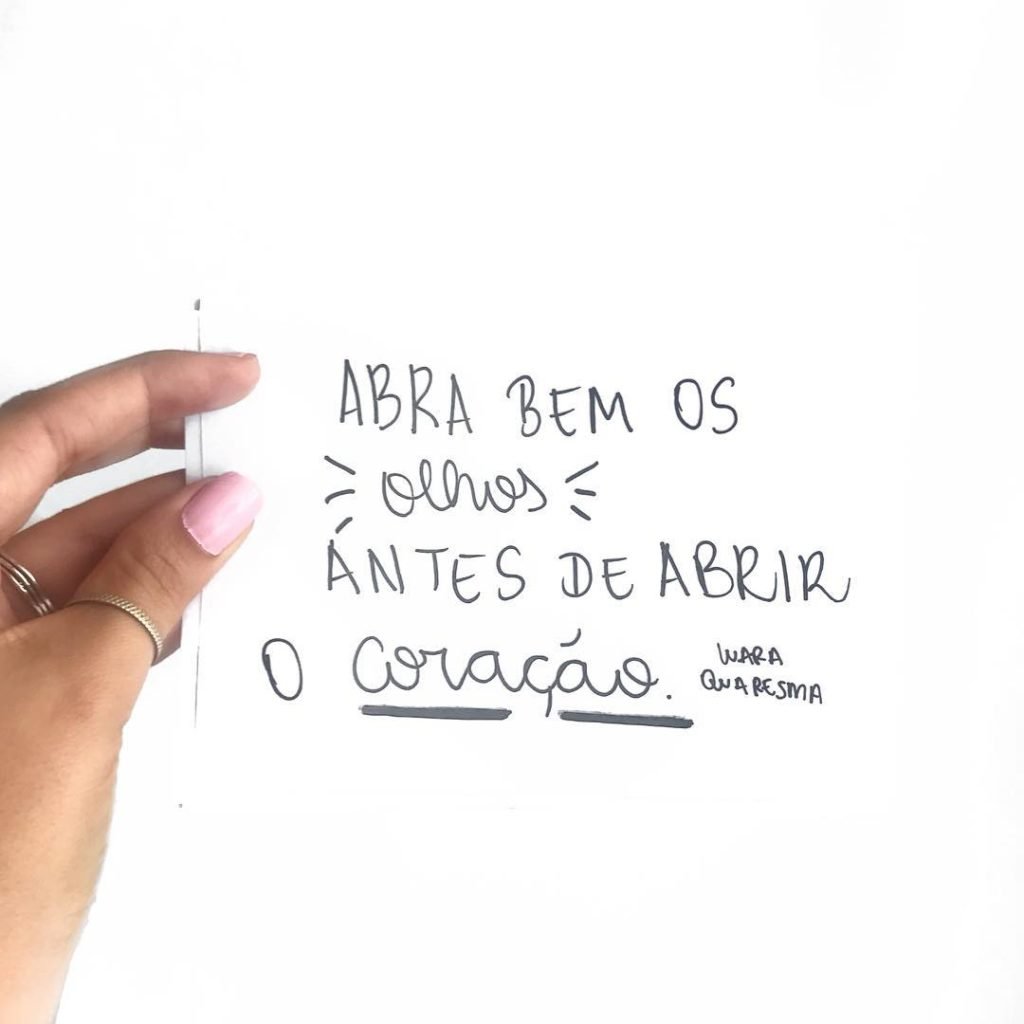 ABRA BEM OS
olhos
ANTES DE ABRIR
O coração.
WARA
QUARESMA